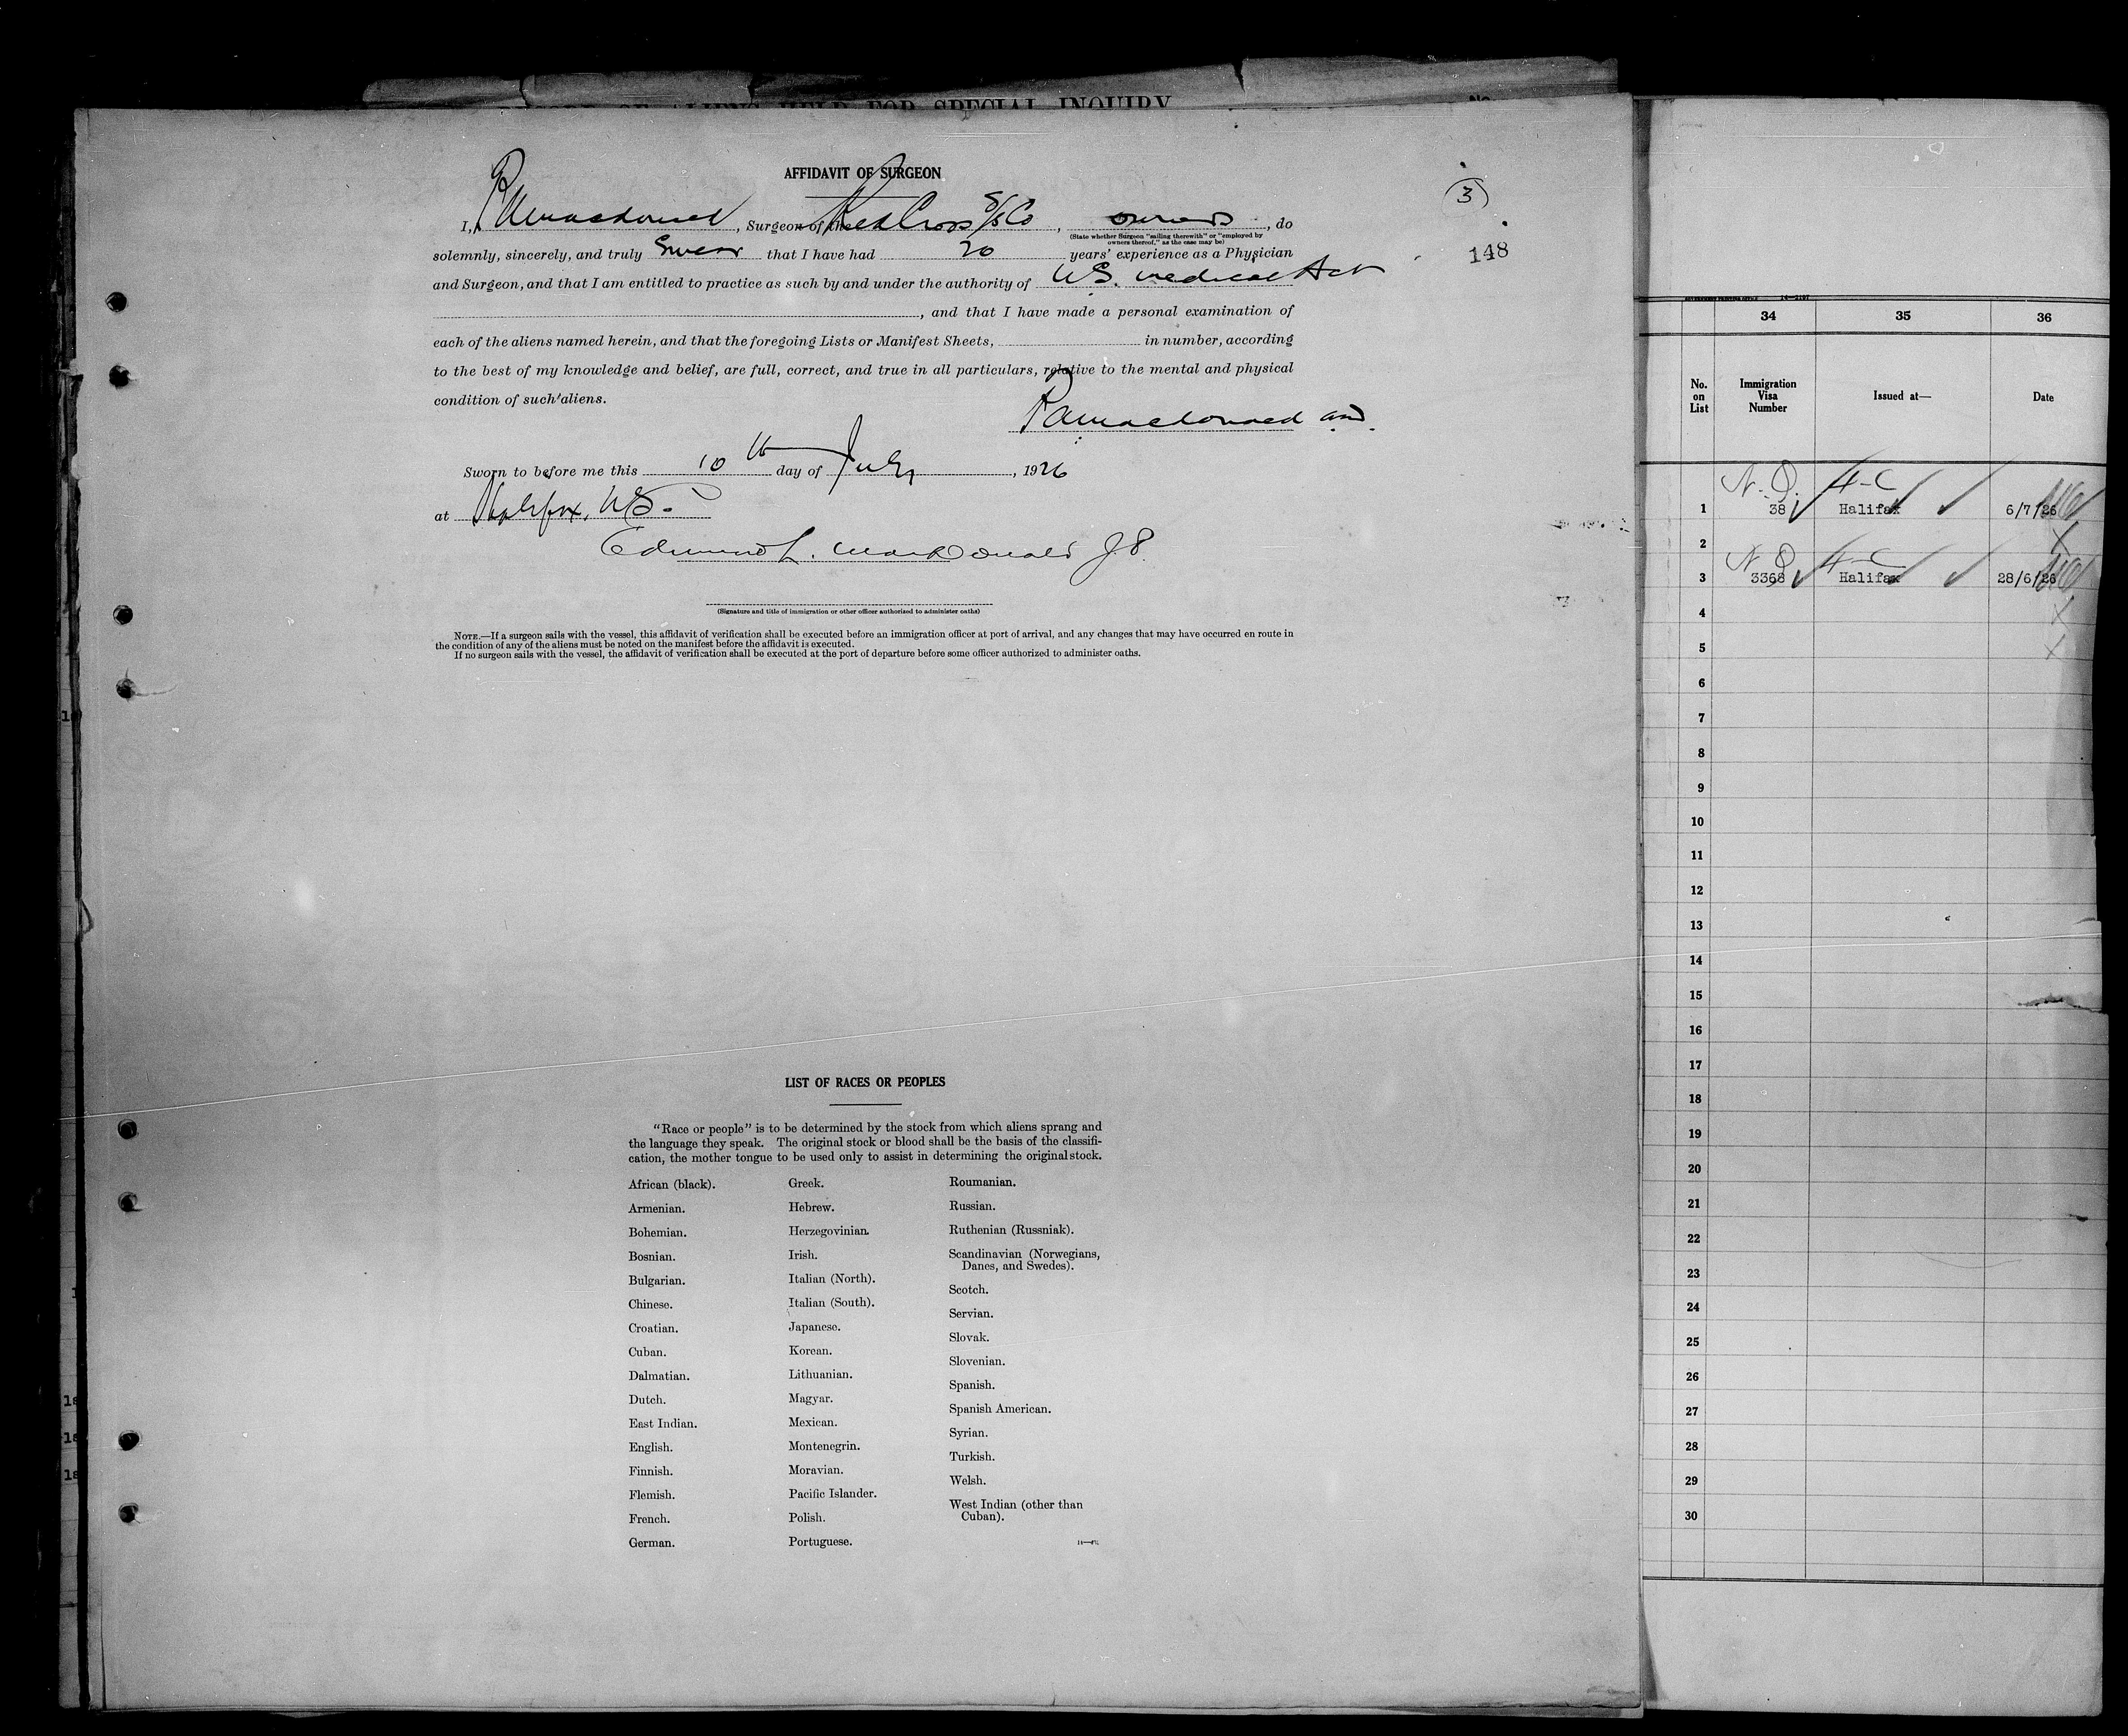 RECORD OF ALIENS HELD FOR SPECIAL INQUIRY No.
AFFIDAVIT OF SURGEON
3
I, R A Macdonald, Surgeon of the Red Cross S/S Co, owners, do
(State whether Surgeon "sailing therewith" or "employed by owners thereof," as the case may be)
solemnly, sincerely, and truly Swear that I have had 20 years' experience as a Physician
148
and Surgeon, and that I am entitled to practice as such by and under the authority of N.S. medical Act
, and that I have made a personal examination of
each of the aliens named herein, and that the foregoing Lists or Manifest Sheets, in number, according
to the best of my knowledge and belief, are full, correct, and true in all particulars, relative to the mental and physical
condition of such aliens.
R A Macdonald MD.
Sworn to before me this 10th day of July, 1926
at Halifax, N.S.
Edmund L. MacDonald J.P.
(Signature and title of immigration or other officer authorized to administer oaths)
NOTE.—If a surgeon sails with the vessel, this affidavit of verification shall be executed before an immigration officer at port of arrival, and any changes that may have occurred en route in
the condition of any of the aliens must be noted on the manifest before the affidavit is executed.
If no surgeon sails with the vessel, the affidavit of verification shall be executed at the port of departure before some officer authorized to administer oaths.
LIST OF RACES OR PEOPLES
"Race or people" is to be determined by the stock from which aliens sprang and
the language they speak. The original stock or blood shall be the basis of the classifi-
cation, the mother tongue to be used only to assist in determining the original stock.
African (black).
Armenian.
Bohemian.
Bosnian.
Bulgarian.
Chinese.
Croatian.
Cuban.
Dalmatian.
Dutch.
East Indian.
English.
Finnish.
Flemish.
French.
German.
Greek.
Hebrew.
Herzegovinian.
Irish.
Italian (North).
Italian (South).
Japanese.
Korean.
Lithuanian.
Magyar.
Mexican.
Montenegrin.
Moravian.
Pacific Islander.
Polish.
Portuguese.
Roumanian.
Russian.
Ruthenian (Russniak).
Scandinavian (Norwegians,
Danes, and Swedes).
Scotch.
Servian.
Slovak.
Slovenian.
Spanish.
Spanish American.
Syrian.
Turkish.
Welsh.
West Indian (other than
Cuban).
34 35 36
No. on List
Immigration Visa Number
Issued at—
Date
N.Q. 4-C
1 38 Halifax 6/7/26
2
N.Q. 4-C
3 3368 Halifax 28/6/26
4
5
6
7
8
9
10
11
12
13
14
15
16
17
18
19
20
21
22
23
24
25
26
27
28
29
30